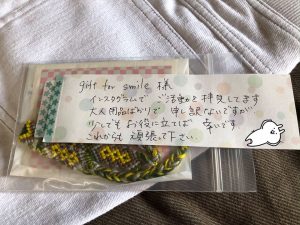 gift for smile 様
インスタグラムで ご活動を 拝見してます
大人用品ばかりで 申し訳ないですが…
少しでも お役に立てば 幸いです
これからも 頑張って下さい